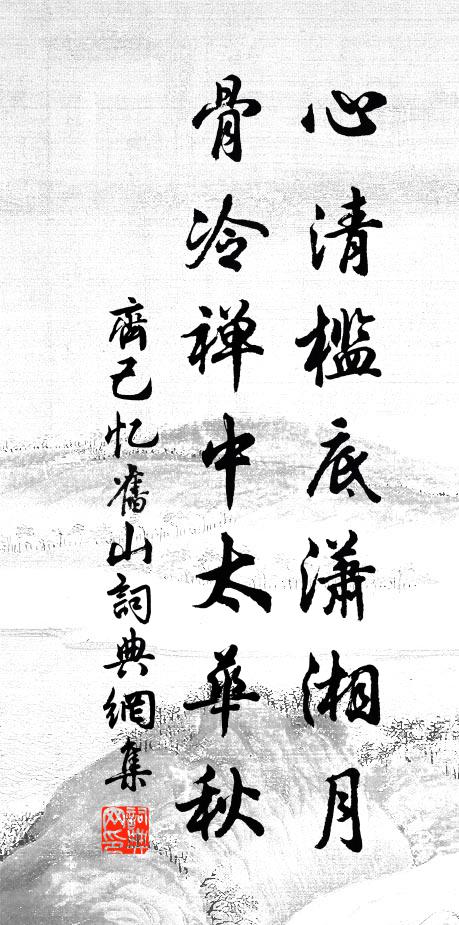 心清檻底潇湘月
骨冷禅中太華秋
齊己忆舊山詞典網集